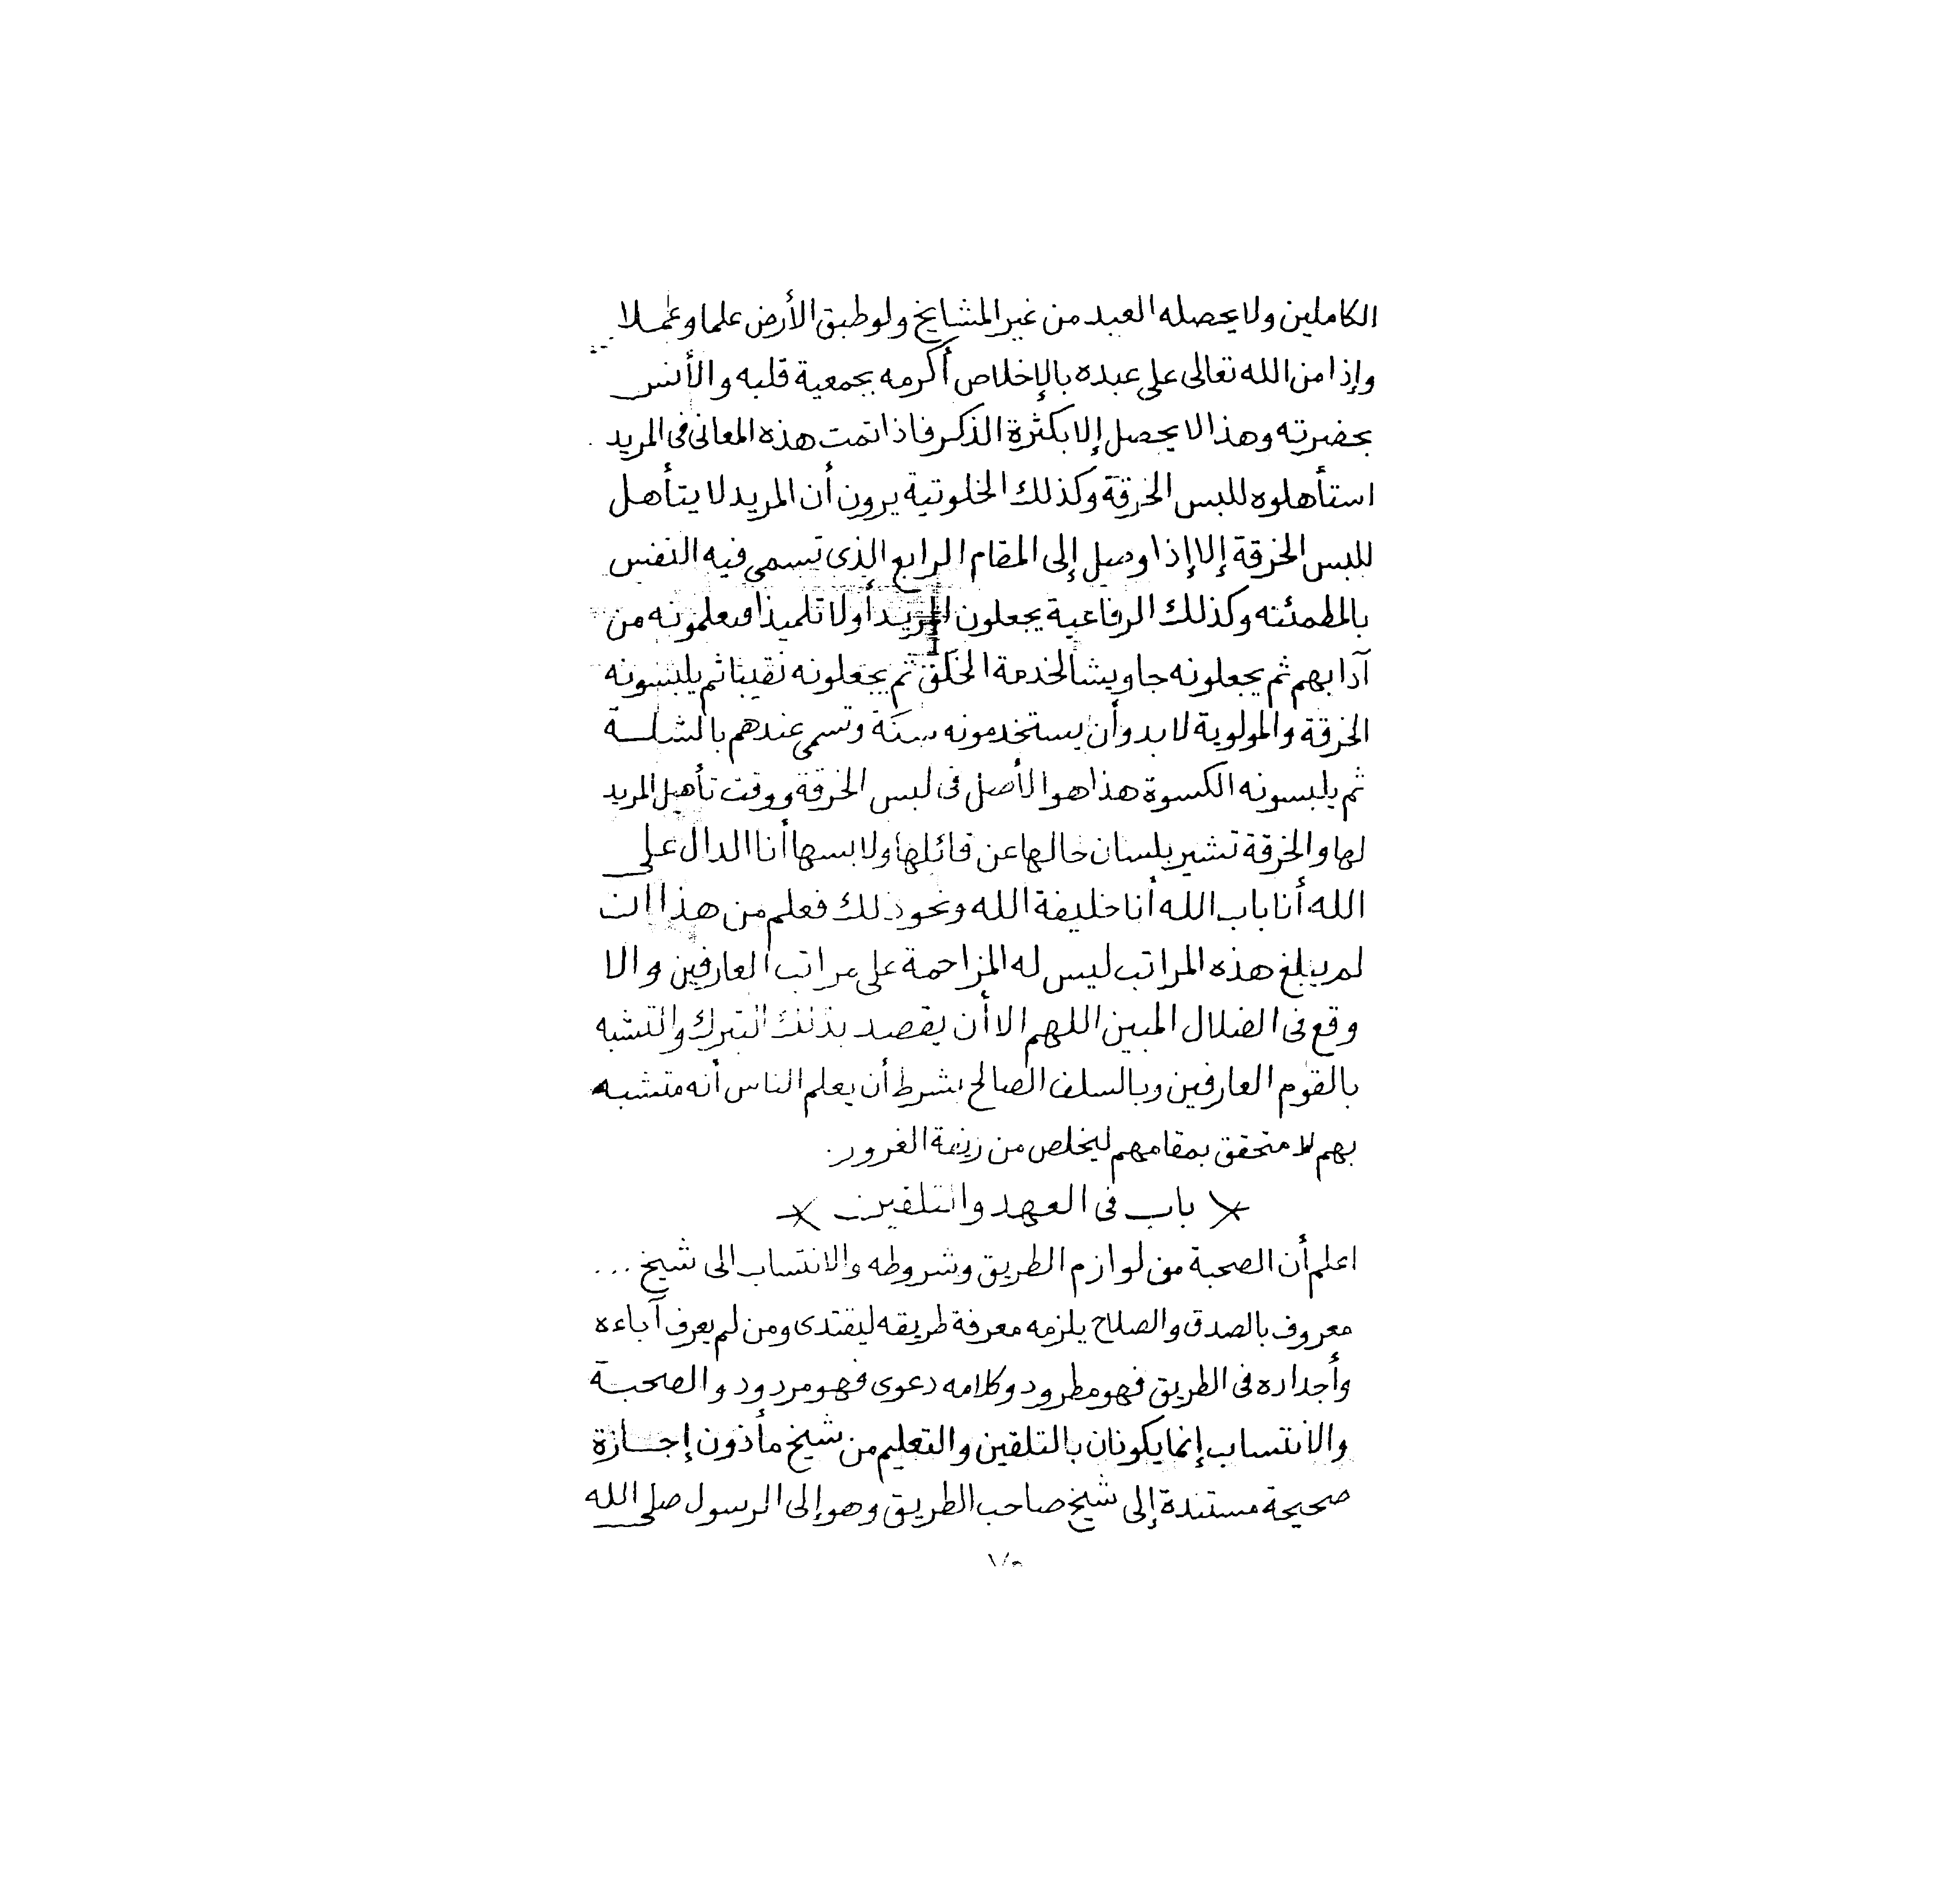 الكاملين ولا يحصله العبد من غير المشايخ ولو طبق الأرض علما وعملا
وإذا من الله تعالى على عبده بالإخلاص أكرمه بجمعية قلبه والأنس
بحضرته وهذا لا يحصل إلا بكثرة الذكر فاذا تمت هذه المعانى فى المريد
استأهلوه للبس الخرقة وكذلك الخلوتية يرون أن المريد لا يتأهل
للبس الخرقة إلا إذا وصل إلى المقام الرابع الذى تسمى فيه النفس
بالمطمئنه وكذلك الرفاعية يجعلون المريد أولا تلميذا ويعلمونه من
آدابهم ثم يجعلونه جاويشا لخدمة الخلق ثم يجعلونه نقيبا ثم يلبسونه
الخرقة والمولوية لا بد وأن يستخدمونه سنة وتسمى عندهم بالشلة
ثم يلبسونه الكسوة هذا هو الأصل فى لبس الخرقة ووقت تأهيل المريد
لها والخرقة تشير بلسان حالها عن قائلها ولابسها أنا الدال على
الله أنا باب الله أنا خليفة الله ونحو ذلك فعلم من هذا ان
لم يبلغ هذه المراتب ليس له المزاحمة على مراتب العارفين والا
وقع فى الضلال المبين اللهم الا أن يقصد بذلك التبرك والتشبه
بالقوم العارفين وبالسلف الصالح بشرط أن يعلم الناس أنه متشبه
بهم لا متحقق بمقامهم ليخلص من الغرور.
باب فى العهد والتلقين
اعلم أن الصحبة من لوازم الطريق وشروطه والانتساب الى شيخ ...
معروف بالصدق والصلاح يلزمه معرفة طريقه ليقتدى ومن لم يعرف آباءه
وأجداده فى الطريق فهو مطرود وكلامه دعوى فهو مردود والصحبة
والانتساب إنما يكونان بالتلقين والتعليم من شيخ مأذون إجازة
صحيحة مستندة إلى شيخ صاحب الطريق وهو إلى الرسول صلى الله